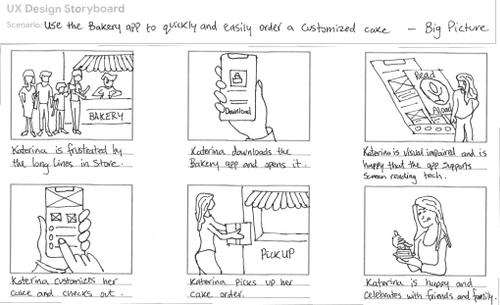 UX Design Storyboard
Scenario: Use the Bakery app to quickly and easily order a customized cake – Big Picture
BAKERY
Download
Read
Aloud
Katerina is frustrated by
the long lines in store.
Katerina downloads the
Bakery app and opens it.
Katerina is visual impaired and is
happy that the app supports
screen reading tech.
PICKUP
Katerina customizes her
cake and checks out.
Katerina picks up her
cake order.
Katerina is happy and
celebrates with friends and family.